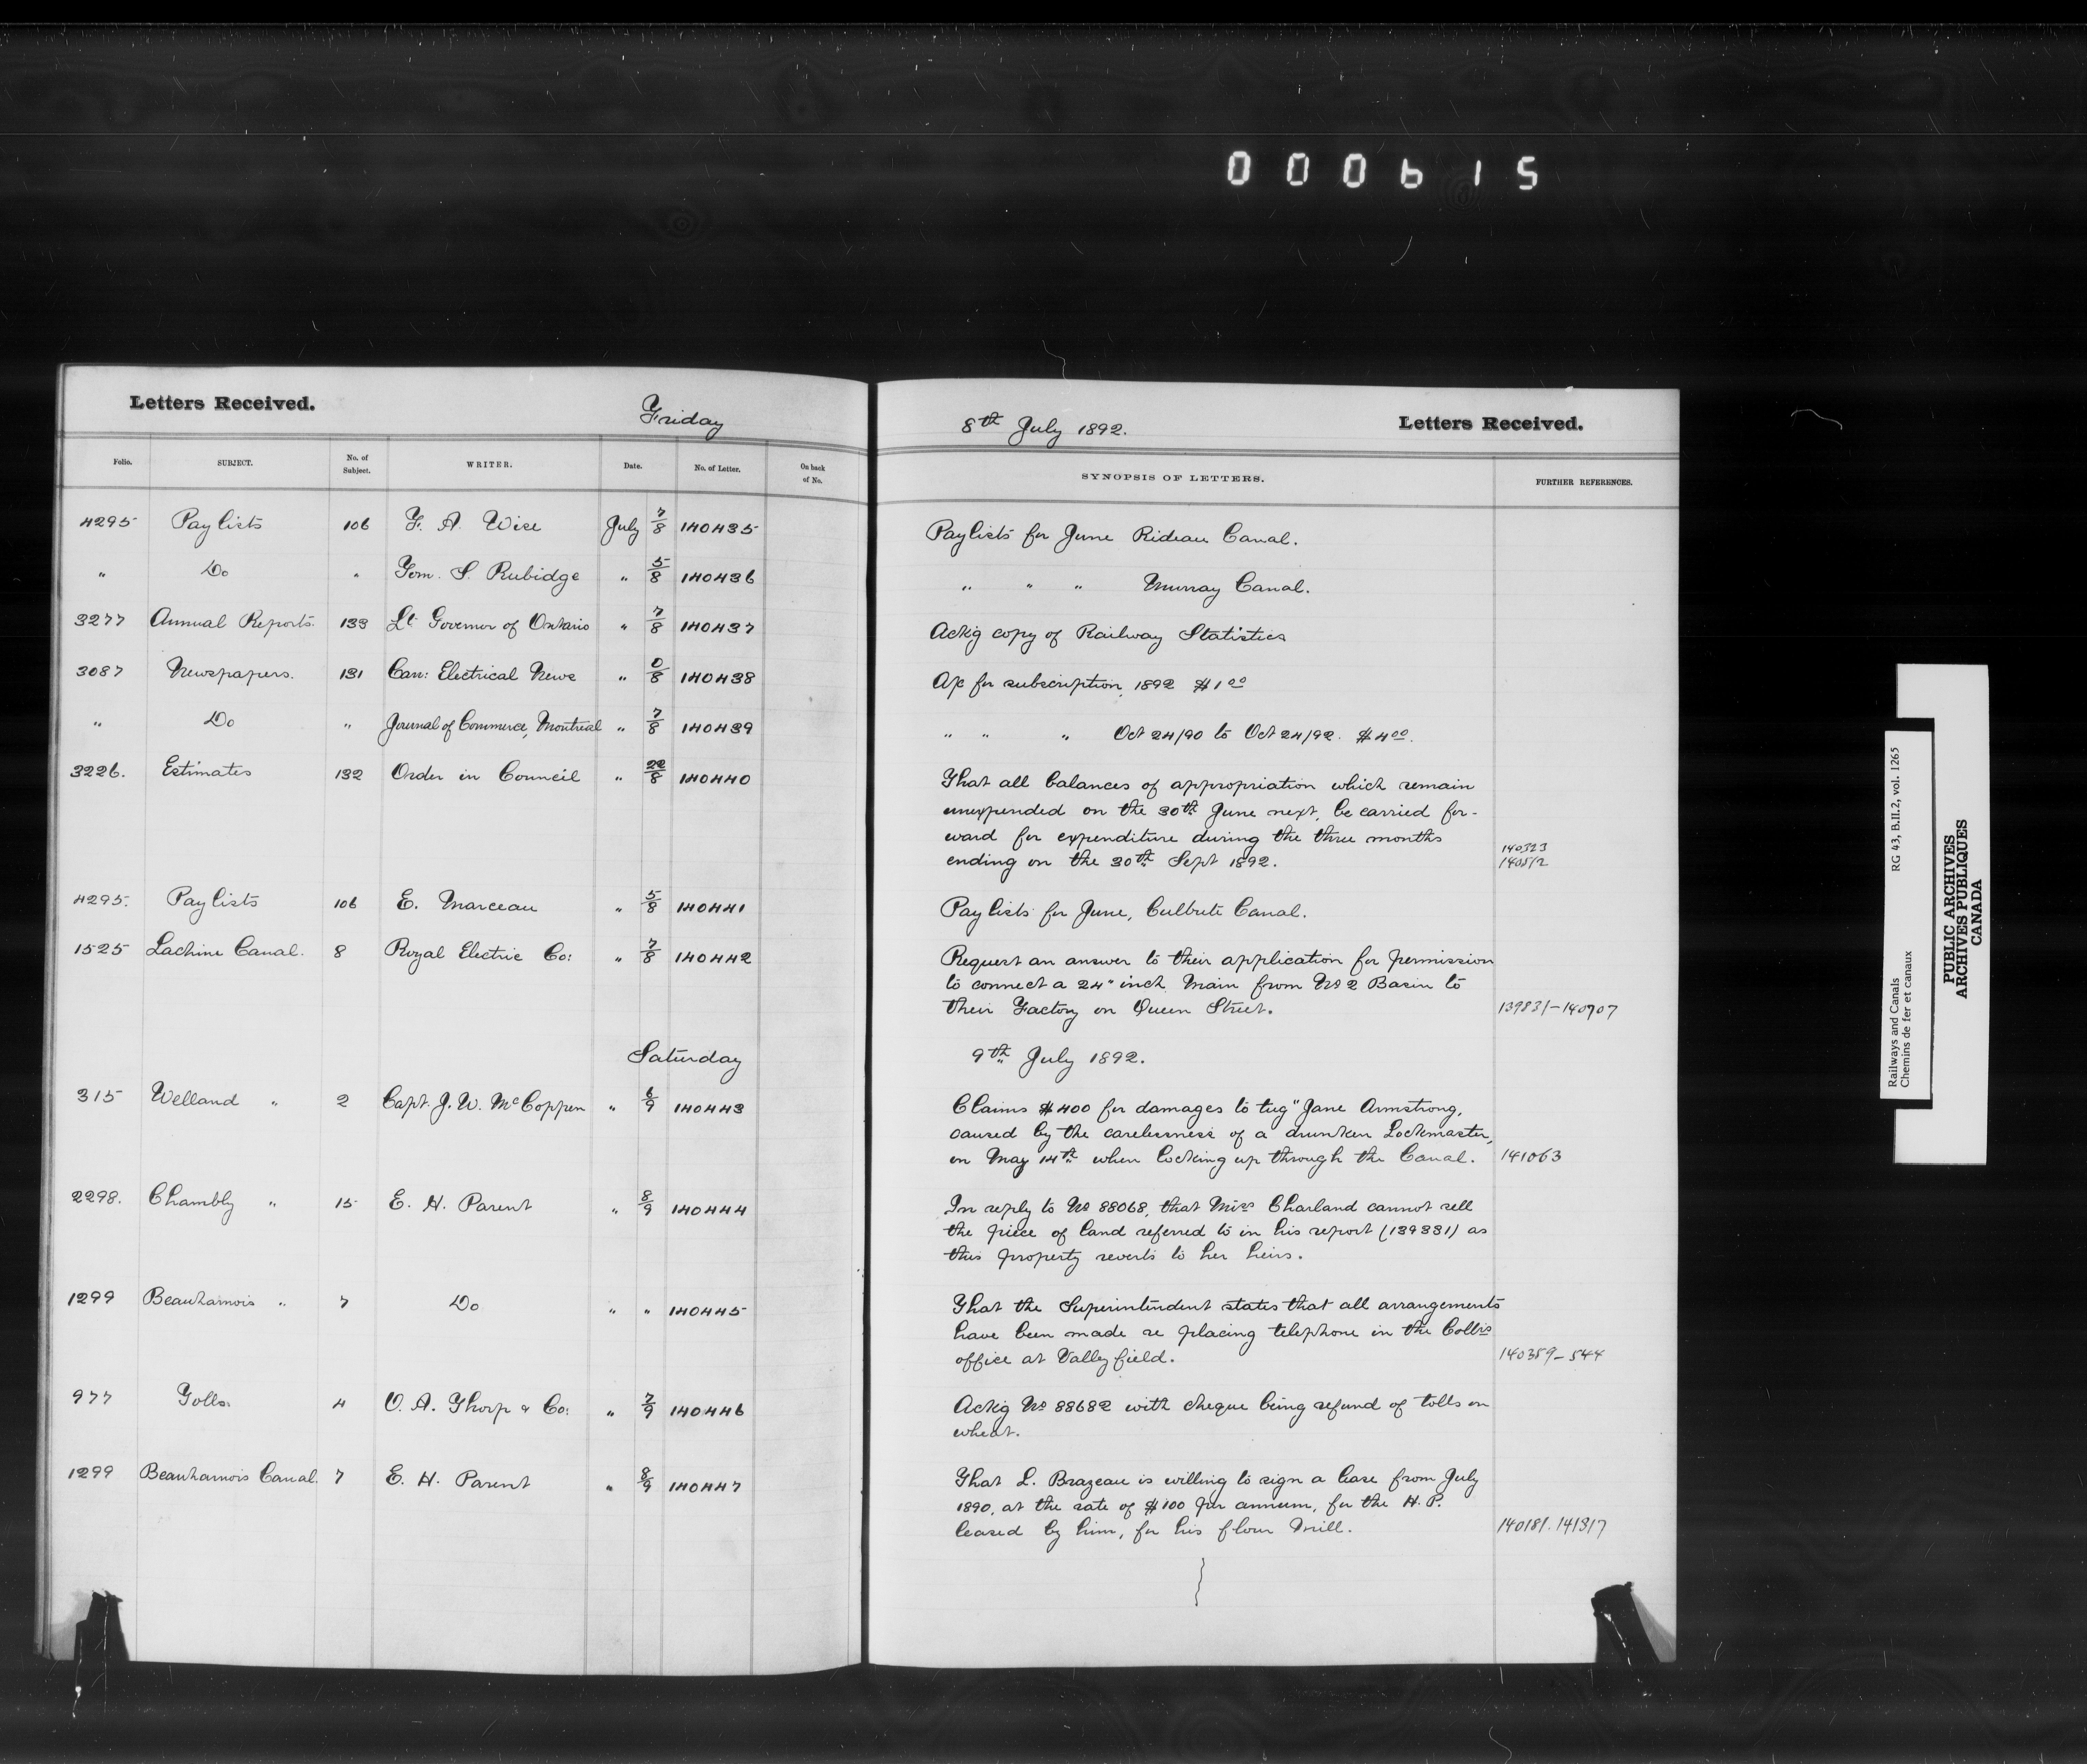 000615
Letters Received. Friday
8th July 1892. Letters Received.
Folio. SUBJECT. No. of Subject. WRITER. Date. No. of Letter. On back of No. SYNOPSIS OF LETTERS. FURTHER REFERENCES.
4295 Paylists 106 F. A. Wise July 7/8 140435 Paylists for June Rideau Canal.
" Do " Tom. S. Rubidge " 5/8 140436 " " " Murray Canal.
3277 Annual Reports. 133 Lt Governor of Ontario " 7/8 140437 Ackg copy of Railway Statistics
3087 Newspapers. 131 Can: Electrical News " 0/8 140438 A/c for subscription, 1892 $1 00
" Do " Journal of Commerce, Montreal " 7/8 140439 " " " Oct 24/90 to Oct 24/92. $4 00.
3226. Estimates 132 Order in Council " 22/8 140440 That all balances of appropriation which remain
unexpended on the 30th June next, be carried for-
ward for expenditure during the three months 140323
ending on the 30th Sept 1892. 140512
4295. Paylists 106 E. Marceau " 5/8 140441 Paylists for June, Culbute Canal.
1525 Lachine Canal. 8 Royal Electric Co: " 7/8 140442 Request an answer to their application for permission
to connect a 24" inch Main from No 2 Basin to
their Factory on Queen Street. 139831-140707
Saturday 9th July 1892.
315 Welland " 2 Capt. J. W. McCoppen " 6/9 140443 Claims $400 for damages to tug "Jane Armstrong,
caused by the carelessness of a drunken Lockmaster,
on May 14th when locking up through the Canal. 141063
2298. Chambly " 15 E. H. Parent " 8/9 140444 In reply to No 88068, that Miss Charland cannot sell
the piece of land referred to in his report (139331) as
this property reverts to her heirs.
1299 Beauharnois " 7 Do " " 140445 That the Superintendent states that all arrangements
have been made re placing telephone in the Collrs
office at Valleyfield. 140359-544
977 Tolls. 4 O. A. Thorp & Co: " 7/9 140446 Ackg No 88682 with cheque being refund of tolls on
wheat.
1299 Beauharnois Canal. 7 E. H. Parent " 8/9 140447 That L. Brazeau is willing to sign a lease from July
1890, at the rate of $100 per annum, for the H. P.
leased by him, for his flour Mill. 140181.141317
Railways and Canals RG 43, B.II.2, vol. 1265
Chemins de fer et canaux
PUBLIC ARCHIVES
ARCHIVES PUBLIQUES
CANADA